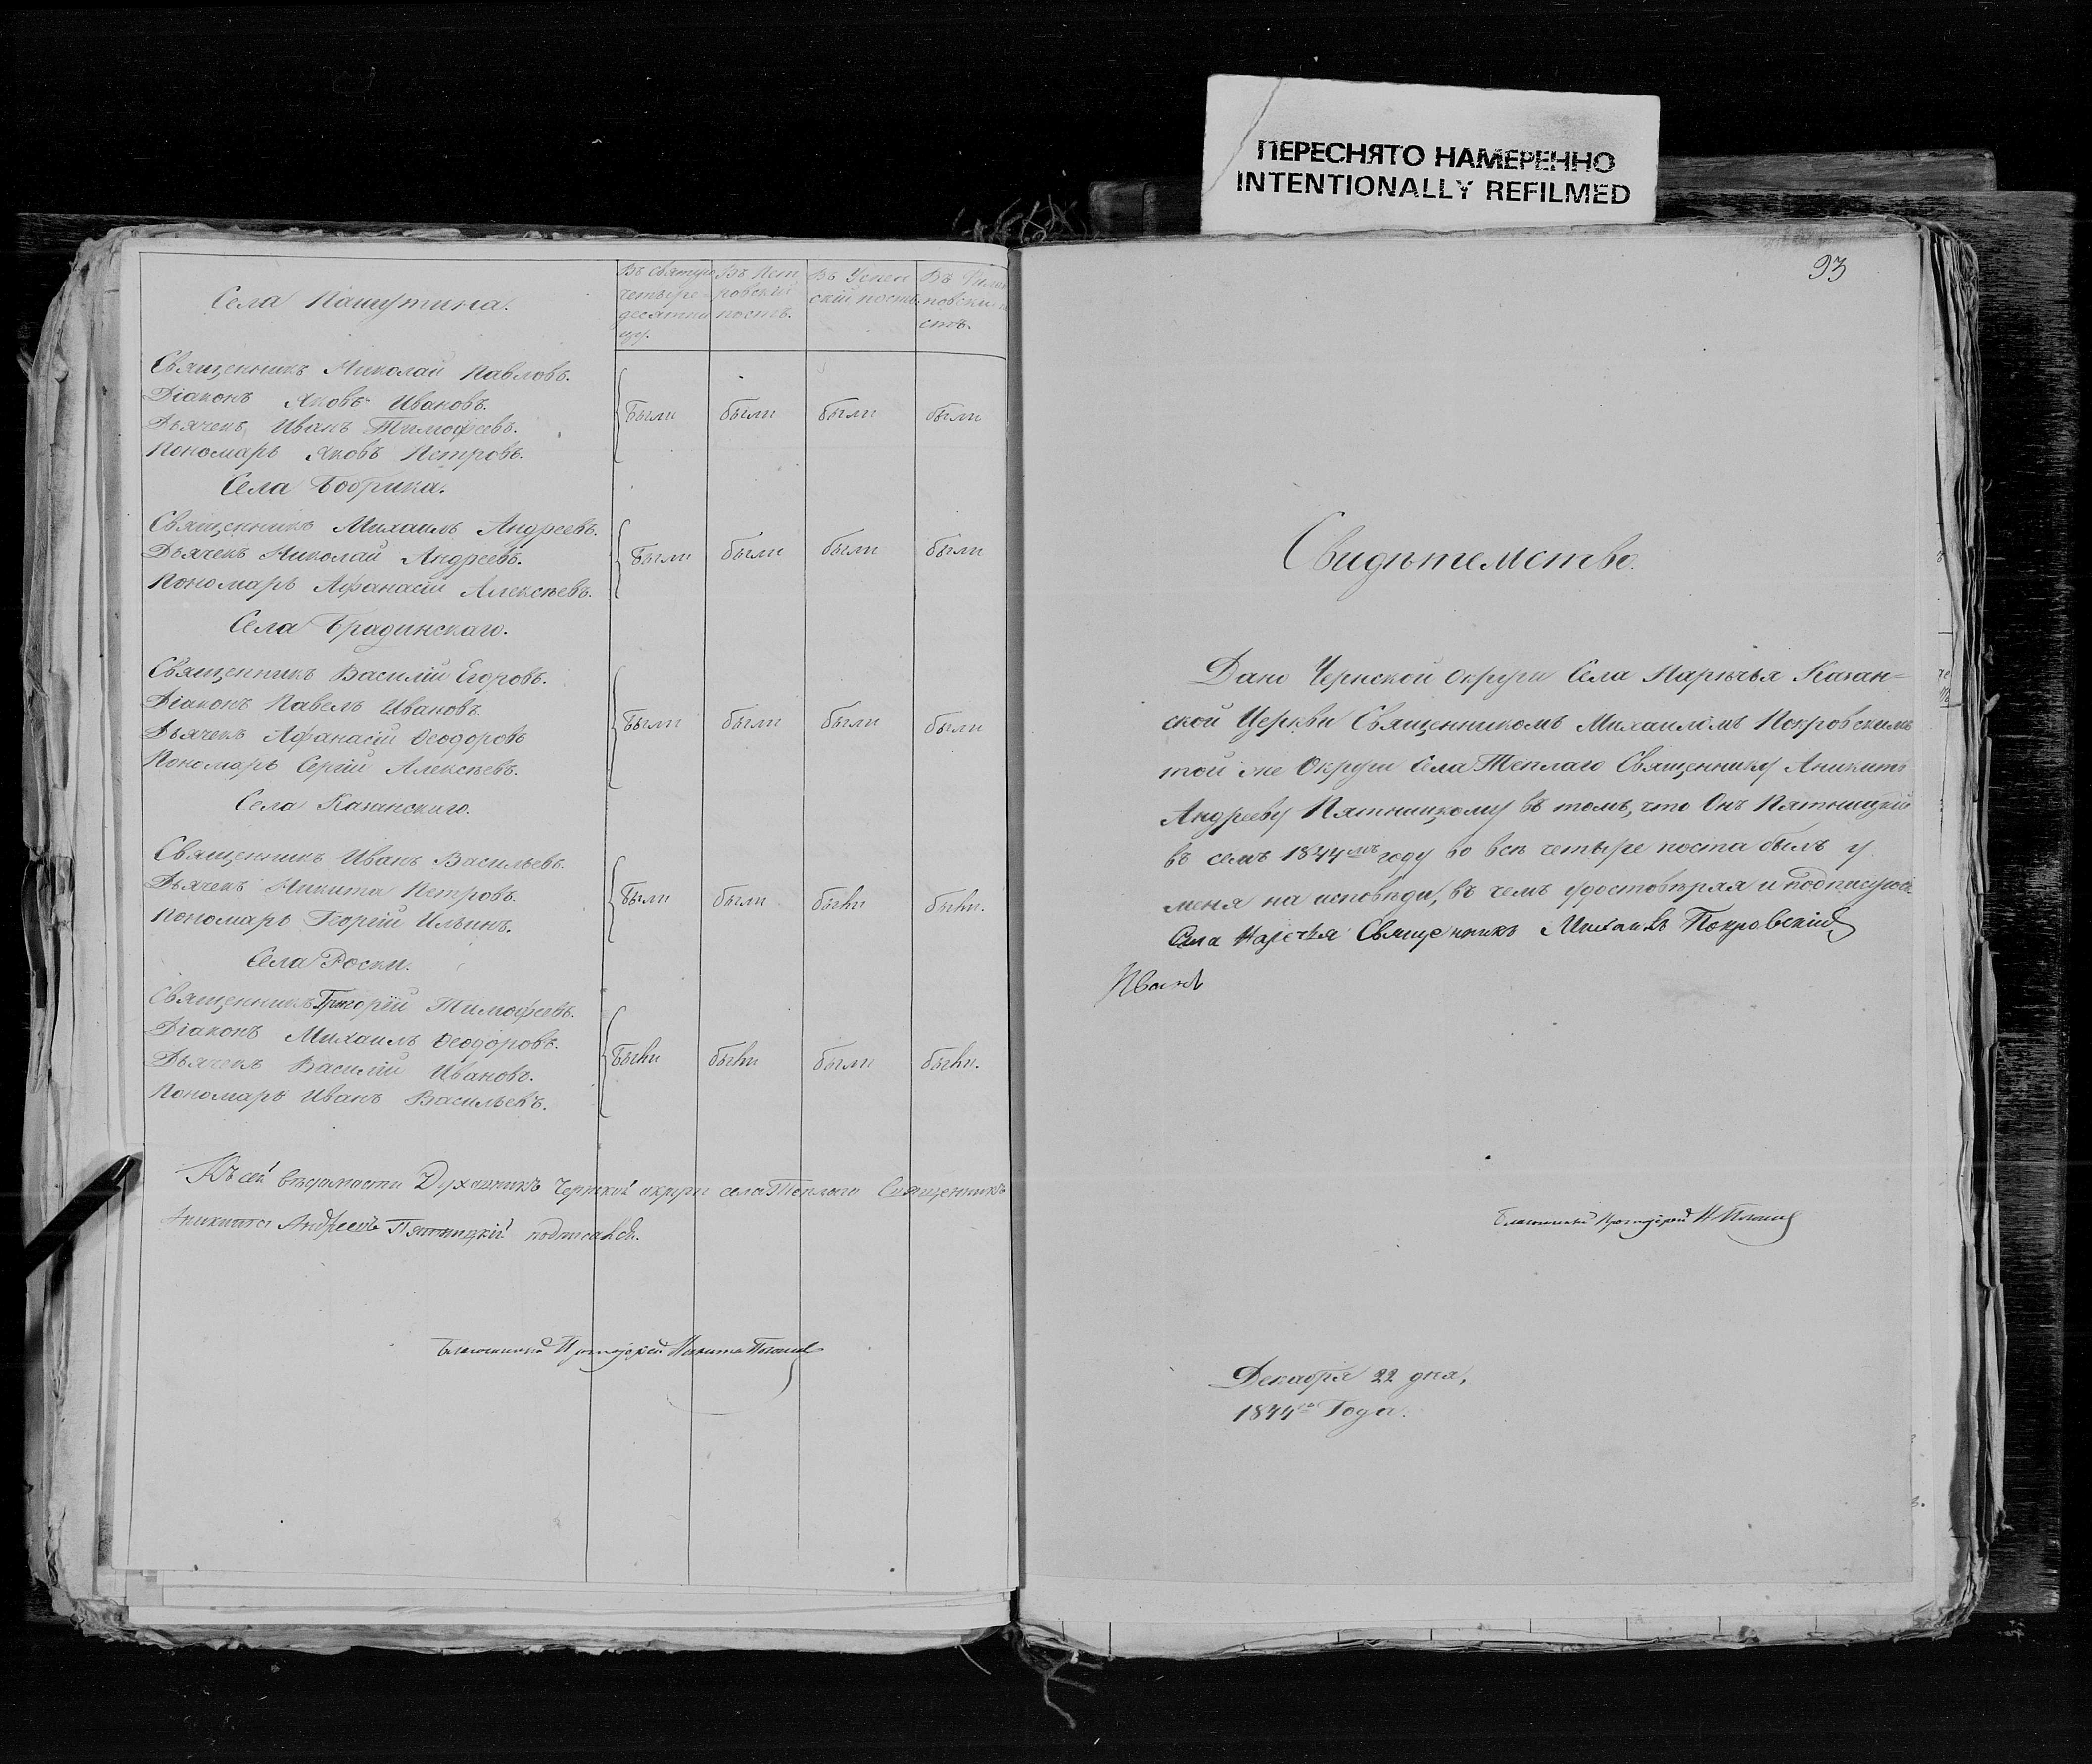 ПЕРЕСНЯТО НАМЕРЕННО
INTENTIONALLY REFILMED
Села Пашутина.
Въ Святую четыредесятницу.
Въ Петровскій постъ.
Въ Успенскій постъ.
Въ Филиповскій постъ.
Священникъ Николай Павловъ.
Діаконъ Яковъ Ивановъ.
Дьячекъ Иванъ Тимофеевъ.
Пономарь Яковъ Петровъ.
Были были были были
Села Бобрика.
Священникъ Михаилъ Андреевъ.
Дьячекъ Николай Андреевъ.
Пономарь Афанасій Алексѣевъ.
Были были были были
Села Брадинскаго.
Священникъ Василій Егоровъ.
Діаконъ Павелъ Ивановъ.
Дьячекъ Афанасій Ѳеодоровъ
Пономарь Сергій Алексѣевъ.
Были были были были
Села Казанскаго.
Священникъ Иванъ Васильевъ.
Дьячекъ Никита Петровъ.
Пономарь Георгій Ильинъ.
Были были были были.
Села Роски.
Священникъ Григорій Тимофеевъ.
Діаконъ Михаилъ Ѳеодоровъ.
Дьячекъ Василій Ивановъ.
Пономарь Иванъ Васильевъ.
Были были были были.
Къ сей вѣдомости Духовникъ Чернской округи села Теплаго Священникъ
Аникита Андреевъ Пятницкій подписался.
Благочинный Протоіерей Никита
93
Свидѣтельство.
Дано Чернской округи Села Нарѣчья Казан=
ской Церкви Священникомъ Михаиломъ Покровскимъ
той же Округи Села Теплаго Священнику Аникитѣ
Андрееву Пятницкому въ томъ, что Онъ Пятницкій
въ семъ 1844мъ году во всѣ четыре поста былъ у
меня на исповѣди, въ чемъ удостовѣряя и подписуюсь
Села Наречья Священникъ Михаилъ Покровскій
Благочинный Протоіерей Н.
Декабря 22 дня,
1844го Года.